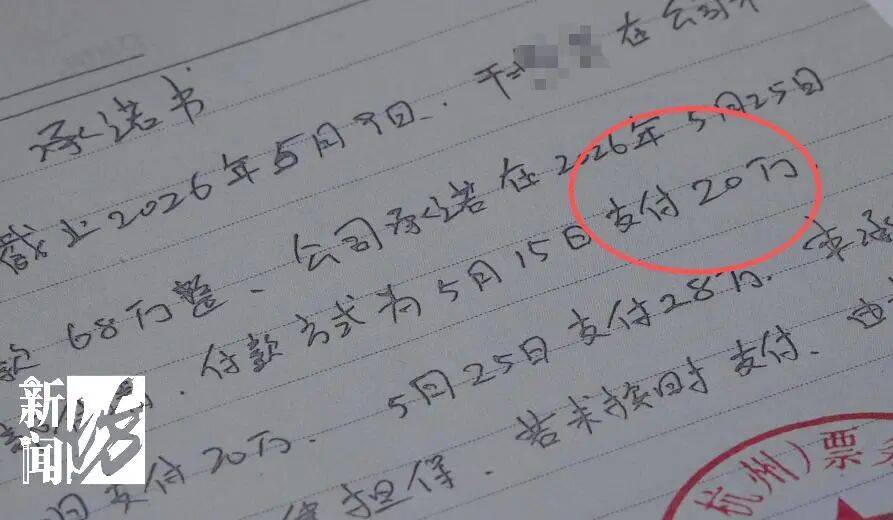 承诺书
截止2026年5月9日.于 在公司
款68万整、公司承诺在2026年5月25日
付款方式为5月15日支付20万.
日支付20万. 5月25日支付28万.
担保、若未按时支付.由
杭州）票务
新闻坊